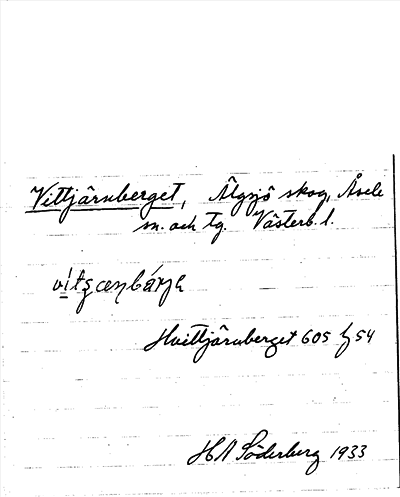 Vittjärnberget, Älgsjö skog, Åsele
sn. och tg. Västerb. l.
Hvittjärnberget 605 h 54
H A Söderberg 1933